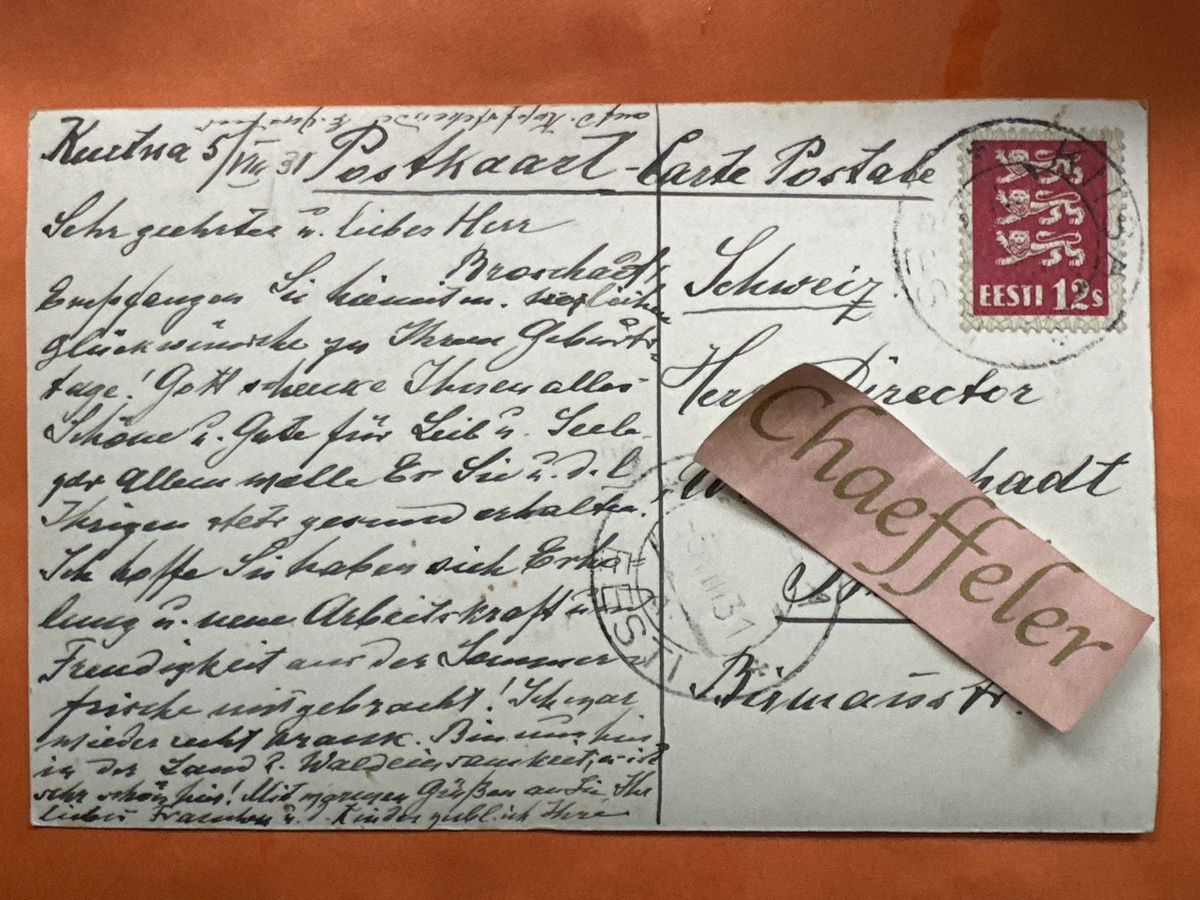 Kurtna 5/VIII 31
Postkaart - Carte Postale
Sehr geehrter u. lieber Herr
Empfangen Sie hiemit m.
Glückwünsche zu Ihrem Geburts-
tage! Gott schenke Ihnen alles
Schöne u. Gute für Leib u. Seele
vor Allem wolle Er Sie u. d. l.
Ihrigen stets gesund erhalten.
Ich hoffe Sie haben sich Erho=
lung u. neue Arbeitskraft u.
Freudigkeit aus der Sommer
frische mitgebracht! Ich war
wieder recht krank. Bin nun hier
in der Land u. Waldeinsamkeit, es ist
sehr schön hier! Mit Grüßen an Sie Ihr
liebes Frauchen u. d. Kinder Ihre
Schweiz
Director
hadt
Birmannsstr.
EESTI 12s
EESTI
31
Chaeffeler